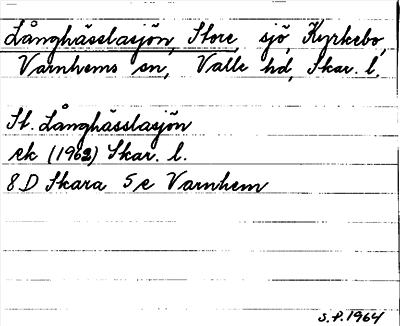 Långhässlasjön, Store, sjö, Kyrkebo,
Varnhems sn, Valle hd, Skar. l.
St. Långhässlasjön
ek (1962) Skar. l.
8D Skara 5e Varnhem
S.P. 1964